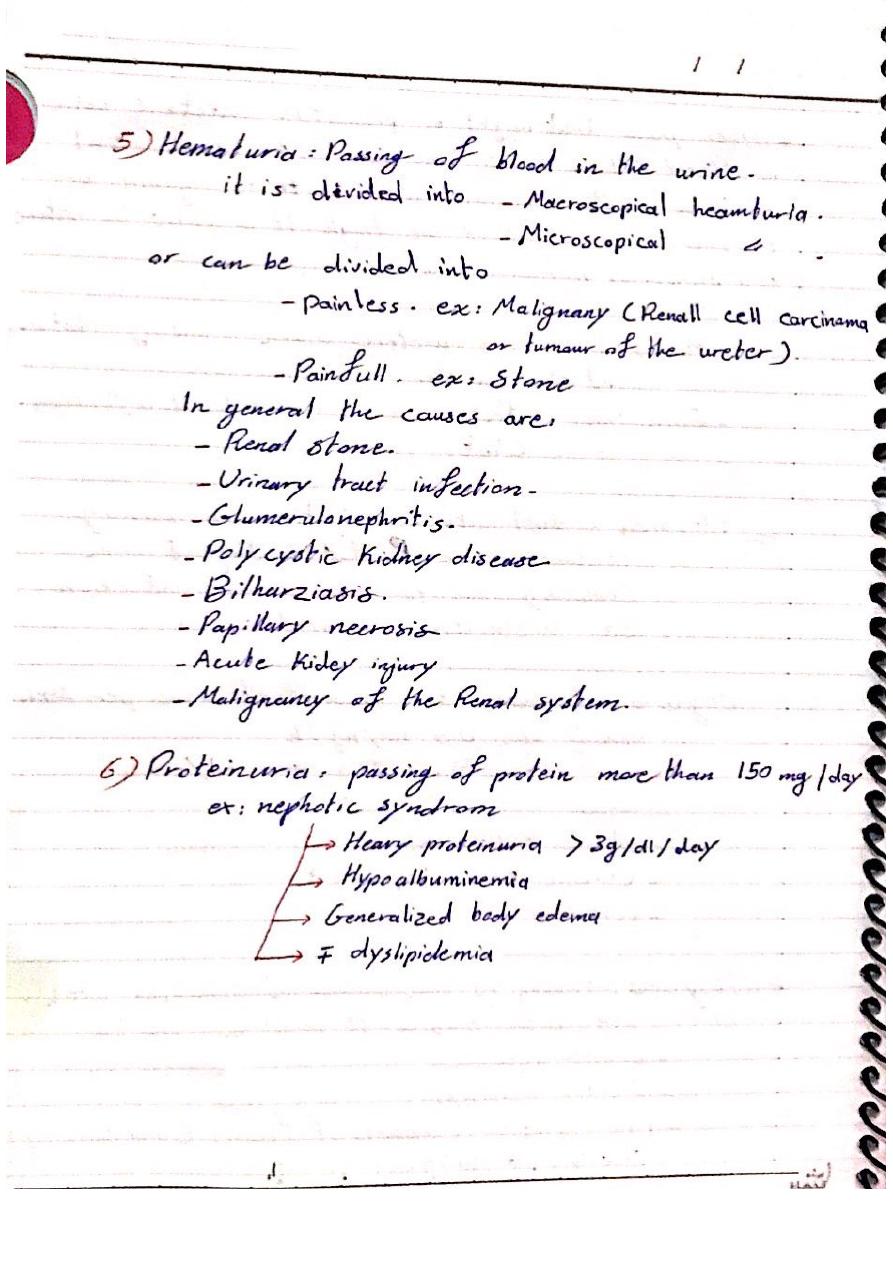 / /
5) Hematuria : Passing of blood in the urine.
it is divided into - Macroscopical heamturia.
- Microscopical 〃 .
or can be divided into
- painless. ex: Malignany (Renall cell carcinama
or tumour of the ureter).
- Painfull. ex: Stone
In general the causes are:
- Renal stone.
- Urinary tract infection-
- Glumerulonephritis.
- Polycystic Kidney disease
- Bilharziasis.
- Papillary necrosis
- Acute Kidey injury
- Malignancy of the Renal system.
6) Proteinuria: passing of protein more than 150 mg/day
ex: nephotic syndrom
→ Heavy proteinuria > 3g/dl/day
→ Hypoalbuminemia
→ Generalized body edema
→ ∓ dyslipidemia